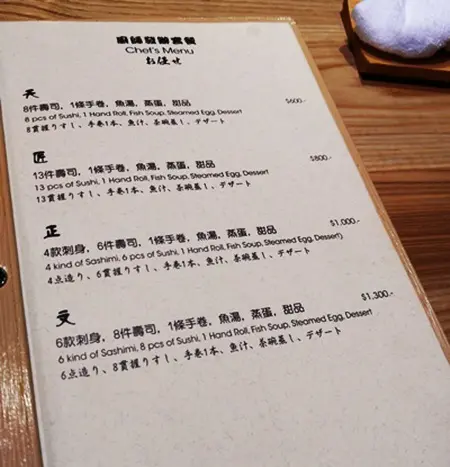 廚師發辦套餐
Chef's Menu
お任せ
天
8件壽司，1條手卷，魚湯，蒸蛋，甜品 $600.-
8 pcs of Sushi, 1 Hand Roll, Fish Soup, Steamed Egg, Dessert
8貫握りすし、手巻1本、魚汁、茶碗蒸し、デザート
匠
13件壽司，1條手卷，魚湯，蒸蛋，甜品 $800.-
13 pcs of Sushi, 1 Hand Roll, Fish Soup, Steamed Egg, Dessert
13貫握りすし、手巻1本、魚汁、茶碗蒸し、デザート
正
4款刺身，6件壽司，1條手卷，魚湯，蒸蛋，甜品 $1,000.-
4 kind of Sashimi, 6 pcs of Sushi, 1 Hand Roll, Fish Soup, Steamed Egg, Dessert)
4点造り、6貫握りすし、手巻1本、魚汁、茶碗蒸し、デザート
文
6款刺身，8件壽司，1條手卷，魚湯，蒸蛋，甜品 $1,300.-
6 kind of Sashimi, 8 pcs of Sushi, 1 Hand Roll, Fish Soup, Steamed Egg, Dessert
6点造り、8貫握りすし、手巻1本、魚汁、茶碗蒸し、デザート